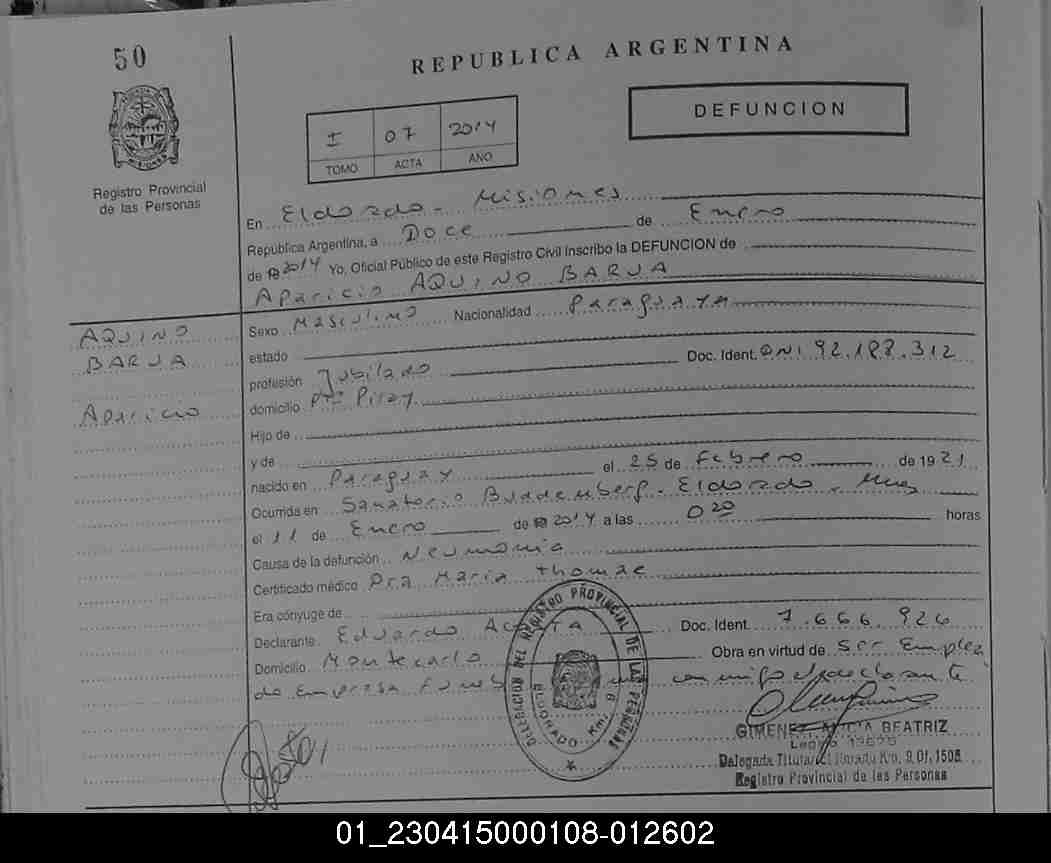 50
REPUBLICA ARGENTINA
DEFUNCION
I 07 2014
TOMO ACTA AÑO
Registro Provincial
de las Personas
En Eldorado - Misiones
República Argentina, a Doce de Enero
de 2014 Yo, Oficial Público de este Registro Civil Inscribo la DEFUNCION de
Aparicio AQUINO BARUA
AQUINO
BARUA
Aparicio
Sexo Masculino Nacionalidad Paraguaya
estado Doc. Ident. DNI 92.188.312
profesión Jubilado
domicilio Pto Piray
Hijo de
y de
nacido en Paraguay el 25 de Febrero de 1921
Ocurrida en Sanatorio Eldorado - Mnes
el 11 de Enero de 2014 a las 0 20 horas
Causa de la defunción Neumonía
Certificado médico Dra Maria Thomae
Era cónyuge de
Declarante Eduardo Doc. Ident 7.666.926
Domicilio Montecarlo Obra en virtud de ser Emplea
do Empresa conmigo el declarante
DELEGACION DEL REGISTRO PROVINCIAL DE LAS PERSONAS
ELDORADO Km. 9
GIMENEZ BEATRIZ
Legajo
Delegada Titular Eldorado Km. 9 Of. 1506
Registro Provincial de las Personas
01_230415000108-012602